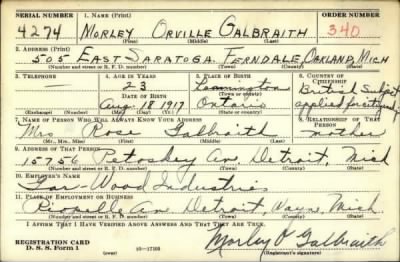 SERIAL NUMBER 1. NAME (Print) ORDER NUMBER
4274 MORLEY ORVILLE GALBRAITH 340
(First) (Middle) (Last)
2. ADDRESS (Print)
505 EAST SARATOGA FERNDALE, OAKLAND, MICH
(Number and street or R. F. D. number) (Town) (County) (State)
3. TELEPHONE 4. AGE IN YEARS 5. PLACE OF BIRTH 6. COUNTRY OF CITIZENSHIP
— 23 Leamington British Subject
DATE OF BIRTH
Aug. 18 1917 Ontario applied for citizenship
(Exchange) (Number) (Mo.) (Day) (Yr.) (State or country)
7. NAME OF PERSON WHO WILL ALWAYS KNOW YOUR ADDRESS 8. RELATIONSHIP OF THAT PERSON
Mrs Rose Galbraith mother
(Mr., Mrs., Miss) (First) (Middle) (Last)
9. ADDRESS OF THAT PERSON
15756 Petoskey Av Detroit, Mich
(Number and street or R. F. D. number) (Town) (County) (State)
10. EMPLOYER'S NAME
Gar-Wood Industries
11. PLACE OF EMPLOYMENT OR BUSINESS
Riopelle Av Detroit, Wayne, Mich
(Number and street or R. F. D. number) (Town) (County) (State)
I AFFIRM THAT I HAVE VERIFIED ABOVE ANSWERS AND THAT THEY ARE TRUE.
REGISTRATION CARD
D. S. S. Form 1 (over) 16—17105 Morley O Galbraith
(Registrant's signature)